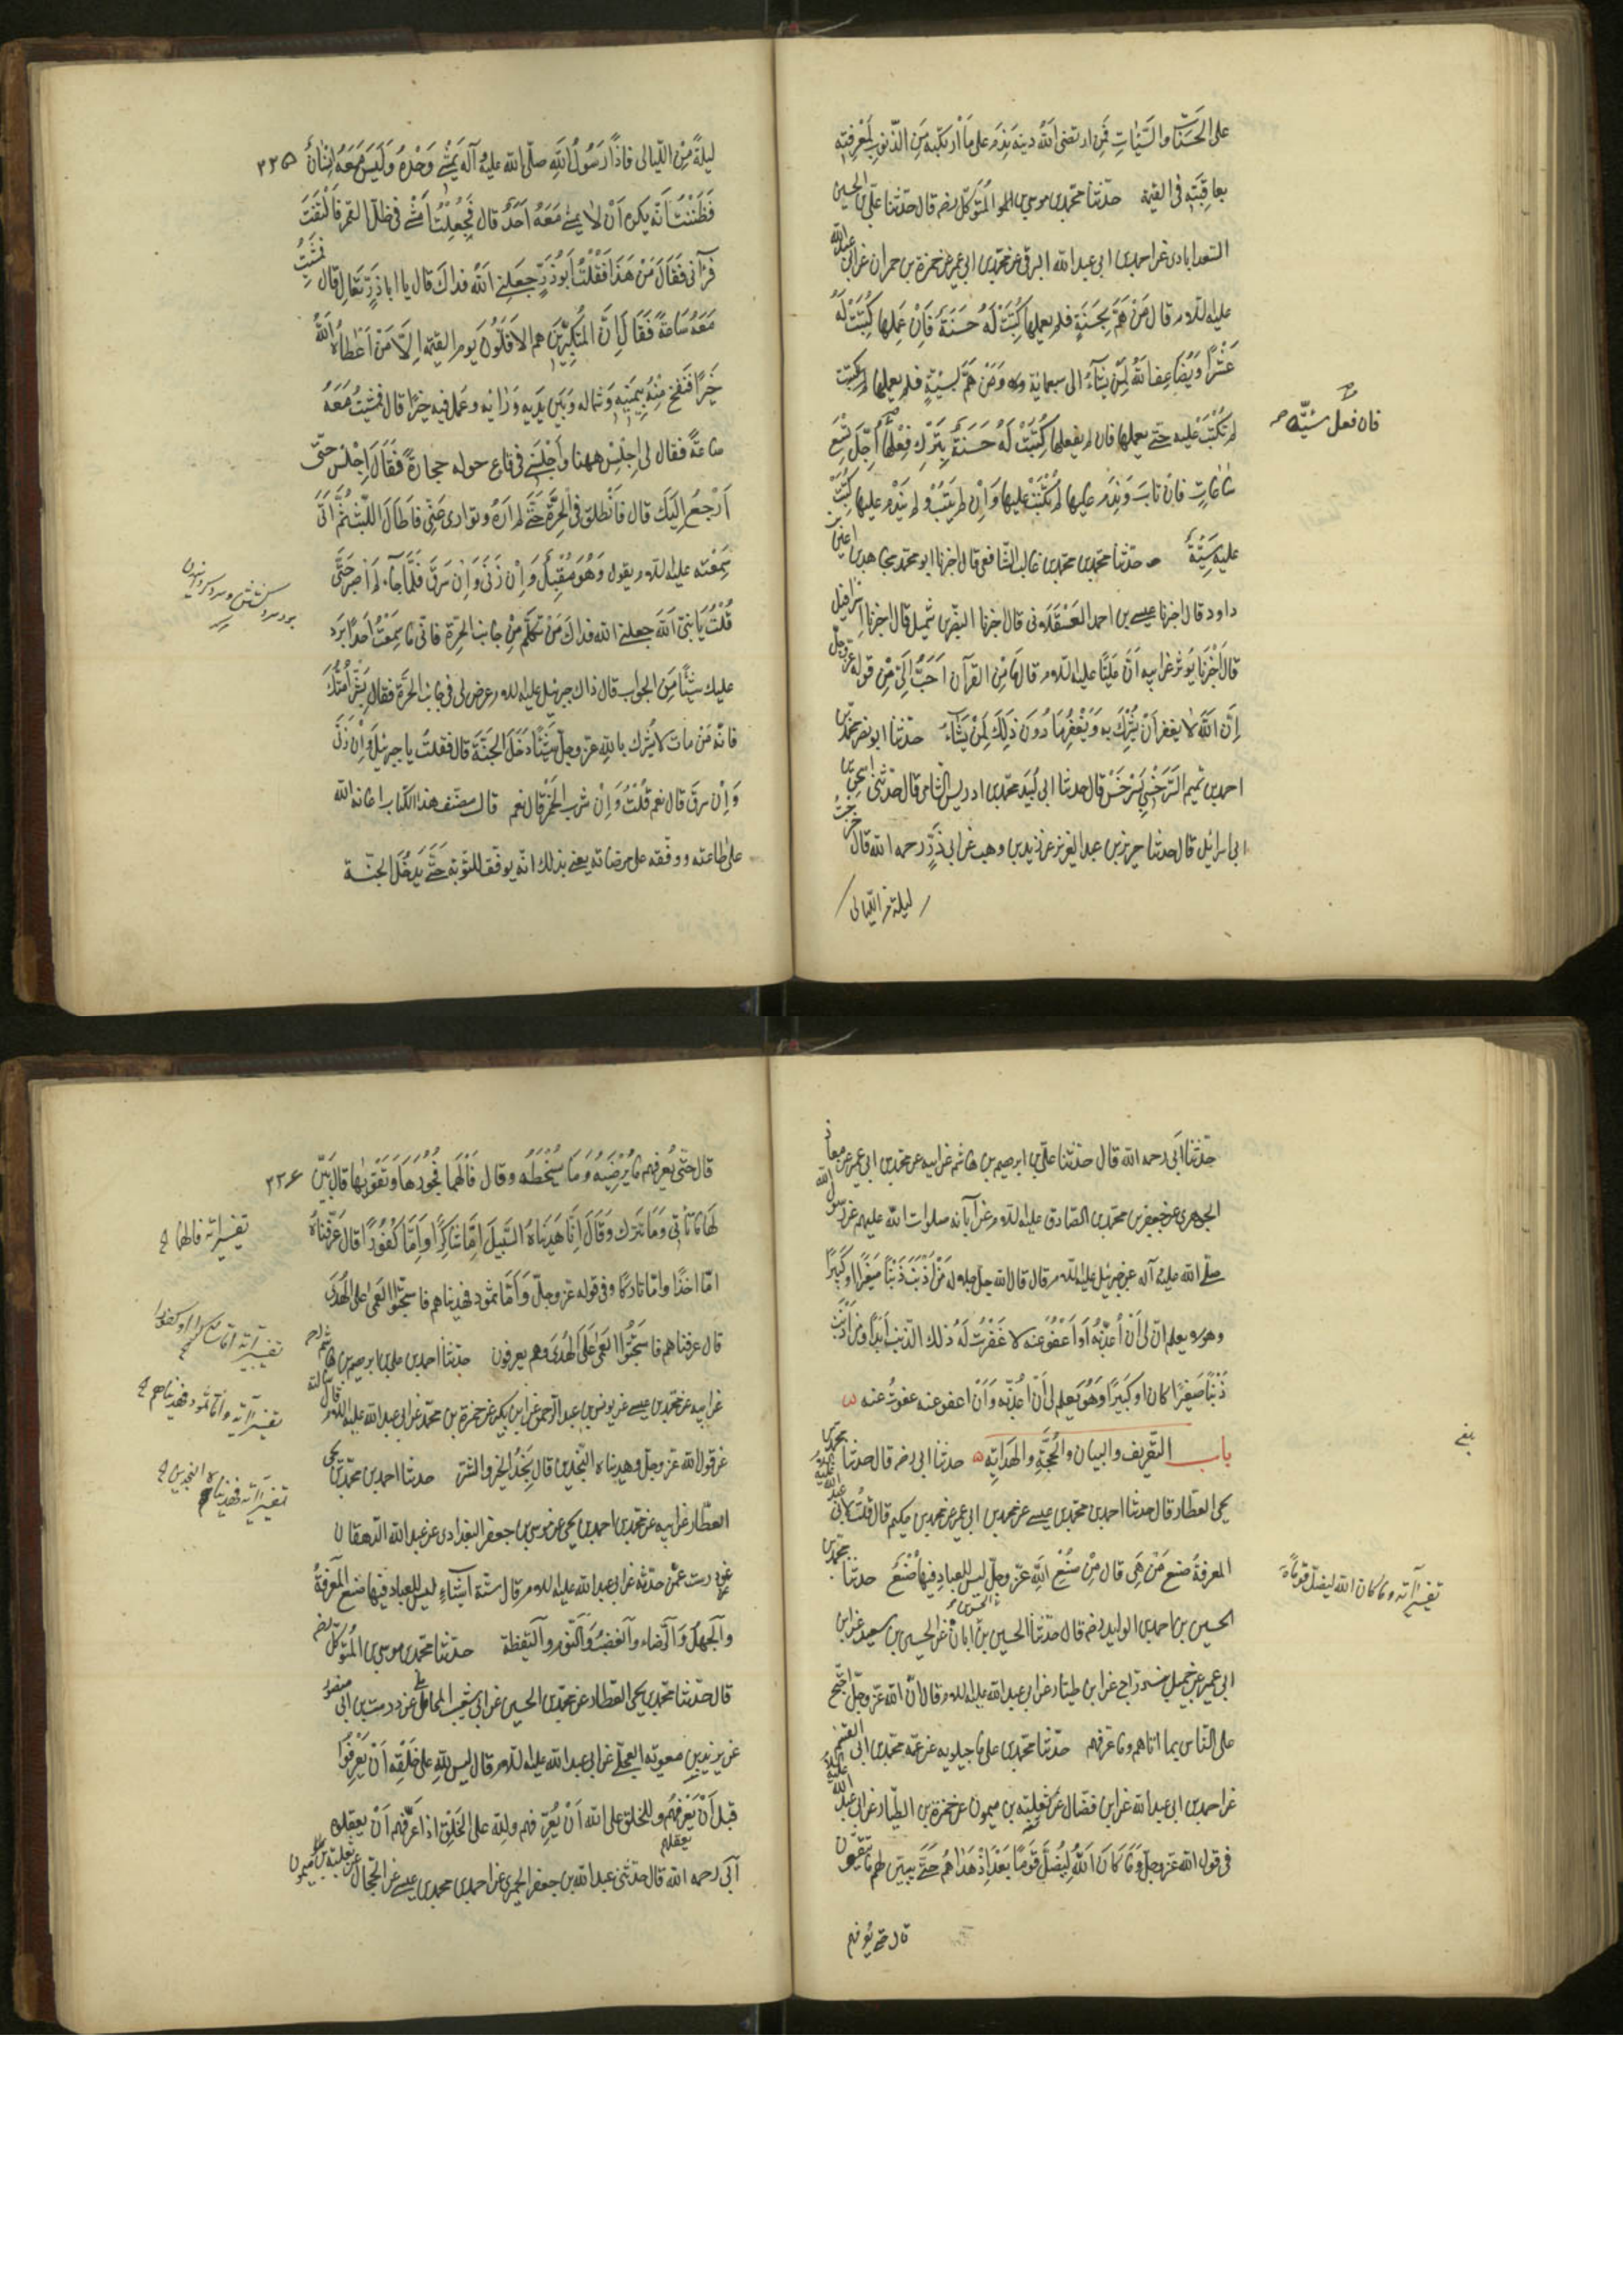 على الحَسَنات والسَّيّئاتِ فَمَن ارتضى اللهُ دينه يَندَم على ما ارتكبه مِنَ الذّنوبِ لمَعْرِفتِه
بعاقِبَتِه فى القيمة حدّثنا محمّد بن موسى بن المتوكّل رضه قال حدّثنا على بن الحسين
السّعدابادى عن احمد بن ابى عبد الله البرقى عن محمّد بن ابى عمير عن حمزة بن حمران عن ابى عبد الله
عليه السلام قال مَنْ هَمَّ بِحَسَنَةٍ فلم يعملها كُتِبَتْ لَهُ حسَنَةٌ فَاِنْ عَمِلها كُتِبَتْ لَهُ
عَشْراً وَيُضاعِف اللهُ لِمَنْ يَشآءُ الى سبعمائة وَمَنْ هَمَّ بسَيّئةٍ فلم يعملها لم يكتب
لم تُكْتَبْ عليه حتّى يعملها فان لم يفعلها كُتِبَتْ لَهُ حَسَنَةٌ بِتَرْكِ فِعْلِها اُجِّلَ تِسْعَ
فان فعل سيّئة صح
ساعاتٍ فانْ تابَ وَنَدِمَ عليها لم تُكْتَبْ عليها وَاِنْ لم يَتُبْ ولم يَنْدَم عليها كُتِبَتْ
عليه سَيِّئَةٌ حدّثنا محمّد بن محمّد بن غالب الشّافعى قال اخبرنا ابو محمّد مجاهد بن اعين بن
داود قال اخبرنا عيسى بن احمد العَسْقَلانى قال اخبرنا النّضر بن شميل قال اخبرنا اسرافيل
قال اَخْبَرَنا ثوير عن ابيه اَنَّ عَلِيًّا عليه السلام قال ما مِنَ القرآن اَحَبُّ اِلَىَّ مِنْ قوله عزّوجلّ
اِنَّ اللهَ لا يغفر اَنْ يُشْرَكَ به وَيَغْفِرُ ما دُونَ ذلِكَ لِمَنْ يَشآءُ حدّثنا ابو نصر محمّد بن
احمد بن تميم السَّرَخْسِى بِسَرْخَسْ قال حدثنا ابى لُبَيْد محمّد بن ادريس الشّامى قال حدّثنى اسحق بن
ابى اسرائيل قال حدثنا جرير بن عبد العزيز عن زيد بن وهب عن ابى ذرٍّ رحمه الله قال خرجتُ
ليلة من اللّيالى
ليلةً مِنْ اللّيالى فاذاً رَسُولُ اللهِ صلّى الله عليه وآله يَمْشى وَحْدَهُ وَلَيسَ مَعَهُ اِنْسانٌ ٢٣٥
فَظَنَنْتُ اَنّه يكره اَنْ لا يمشى مَعَهُ اَحَدٌ قال فَجَعَلْتُ اَمْشى فى ظلّ القمر فَالْتَفَتَ
فرآنى فَقالَ مَنْ هذَا فَقُلْتُ اَبُو ذَرٍّ جعلنى اللهُ فداكَ قال يا ابا ذَرٍّ تَعالِ قال فمشَيْتُ
مَعَهُ ساعَةً فَقالَ اِنَّ المُكثِرِينَ هم الاَقَلّونَ يوم القيمة اِلاّ مَنْ اَعْطاهُ اللهُ
خَيراً فَنَفَخَ مِنْهُ بِيَمِينِه وشماله وَبَينَ يَدَيه وَوَرائِه وعَمِلَ فيه خيرًا قال فمشَيْتُ مَعَهُ
ساعَةً فقال لى اِجْلِسْ ههنا وَاَجْلَسَنى فى قاع حوله حجارةٌ فَقالَ لى اِجْلِسْ حتّى
اَرْجِعَ اِلَيكَ قال فَانْطَلَقَ فى الحَرَّةِ حتّى لم اَرَهُ وتوارى عَنّى فَاطالَ اللّبْث ثُمَّ اَنّى
سَمِعْتُه عليه السلام يقول وَهُوَ مُقْبِلٌ وَاِنْ زَنى وَاِنْ سَرَقَ قال فَلَمّا جاءَ لم اَصْبِرْ حَتّى
قُلْتُ يا نَبِىَّ اللهِ جعلنى الله فداكَ مَنْ تُكَلِّمُ مِنْ جانب الحَرَّةِ فانّى ما سَمِعْتُ اَحَدًا يَرُدُّ
عليك شَيئًا مِنَ الجوابِ قال ذاك جبرئيل عليه السلام عرض لى فى جانب الحَرَّة فقال بَشِّرْ اُمَّتَكَ
فانّه مَنْ مات لا يُشْرِك بالله عزّوجلّ شَيئًا دَخَلَ الجَنَّةَ قال فقلتُ يا جبرئيل وَاِنْ زَنى
وَاِنْ سرقَ قال نعم قُلْتُ وَاِنْ شرب الخَمْر قال نعم قال مصنّف هذا الكتاب اعانه الله
على طاعته ووفّقه على مرضاته يعنى بذلك انّه يوفّق للتّوبة حتّى يَدخُلَ الجنّة
حدّثنا اَبى رحمه الله قال حدّثنا علىّ بن ابرهيم بن هاشم عن ابيه عن محمّد بن ابى عمير عن معاذ
الجوهرى عن جعفر بن محمّد الصّادق عليه السلام عن آبائه صلوات الله عليهم عن رسول الله
صلّى الله عليه وآله عن جبرئيل عليه السلام قال قال الله جلّ جلاله مَنْ اَذْنَبَ ذَنْبًا صَغِيرًا او كَبِيرًا
وهو لا يعلم انّ لى اَنْ اُعَذِّبَهُ اَوْ اَعْفُوَ عنه لا غَفَرْتُ لَهُ ذلك الذّنب اَبَدًا ومَنْ اَذْنَبَ
ذَنْبًا صَغِيرًا كان او كَبِيرًا وَهُوَ يَعلم لى اَنْ اُعَذِّبَه وَاَنْ اعفو عنه عفوتُ عنه
باب التّعريف والبيان والحُجَّةِ والهدَايَةِ حدثنا ابى رضه قال حدثنا محمّد بن
يحيى العطّار قال حدثنا احمد بن محمّد بن عيسى عن محمد بن ابى عمير عن محمد بن حكيم قال قُلْتُ لابى عبد الله عليه السلام
المعرفةُ صُنع مَنْ هِىَ قال مِنْ صُنْعِ اللهِ عزّوجلّ ليس للعبادِ فيها صُنْعٌ حدثنا محمّد بن
الحسين بن احمد بن الوليد رضه قال حدّثنا الحسين بن الحسن بن ابان عن الحسين بن سعيد عن ابن
ابى عمير عن جميل بن درّاج عن ابن طيّار عن ابى عبد الله عليه السلام قال انّ الله عزّوجلّ احتجّ
على النّاس بما اتاهم وما عرّفهم حدّثنا محمّد بن على ماجيلويه عن عمّه محمّد بن ابى القسم
عن احمد بن ابى عبد الله عن ابن فضّال عن ثعلبة بن ميمون عن حمزة بن الطيّار عن ابى عبد الله عليه السلام
فى قول الله عزّوجلّ وَما كانَ اللهُ لِيُضِلَّ قَومًا بَعْدَ اِذْ هَداهُمْ حَتّى يبيّن لهم ما يَتّقُون
تفسير آية وما كان الله ليضلّ قوماً
قال حتّى يُعرّفهم
قال حَتّى يُعرّفهم ما يُرْضِيهُ وَما يُسْخِطُه وقال فَاَلْهَمَها فُجُورَها وَتَقْويها قال بَيَّنَ ٢٣٦
لَها ما تأتى وَما تترك وَقالَ اِنّا هَدَيناهُ السَّبِيلَ اِمّا شاكِرًا وَاِمّا كَفُورًا قال عَرَّفْناهُ
تفسير آية فالهمها
امّا اخذًا وامّا تاركًا وفى قوله عزّوجلّ وَاَمّا ثمود فهديناهم فاستحبّوا العَمى على الهُدَى
تفسير آية امّا شاكرا او كفورا
قال عرفناهم فَاسْتَحَبُّوا العَمى عَلَى الهُدَى وهم يعرفون حدّثنا احمد بن على بن ابرهيم بن هاشم رحمه الله قال
تفسير آية وامّا ثمود فهديناهم
عن ابيه عن محمّد بن عيسى عن يونس بن عبد الرّحمن عن ابن بكير عن حمزة بن محمّد عن ابى عبد الله عليه السلام قال سالته
عن قول الله عزّوجلّ وهديناه النّجدين قال نَجْدُ الخير والشّرّ حدثنا احمد بن محمّد بن يحيى
تفسير آية فهديناه النجدين
العطّار عن ابيه عن محمّد بن احمد بن يحيى عن موسى بن جعفر البغدادى عن عبد الله الدّهقان
عن درست عمّن حدّثه عن ابى عبد الله عليه السلام قال ستّة اَشياء ليس للعباد فيها صنع المَعْرِفةُ
وَالجَهْلُ وَالرّضاء وَالغَضَبُ وَالنّوم وَاليَقظة حدّثنا محمّد بن موسى بن المُتَوَكّل رضه
قال حدّثنا محمّد بن يحيى العطّار عن محمّد بن الحسين عن ابى شعيب المحاملى عن درست بن ابى منصور
عن بريد بن معوية العجلى عن ابى عبد الله عليه السلام قال ليس لِلّهِ على خَلْقِه اَنْ يَعْرِفُوا
قبل اَنْ يَعْرِفَهُم وللخلق على الله اَنْ يُعرّفهم ولله على الخَلْقِ اذا عَرَّفَهم اَنْ يعقلوه
اَبى رحمه الله قال حدّثنى عبد الله بن جعفر الحميرى عن احمد بن محمد بن عيسى عن الحجّال عن ثعلبة بن ميمون